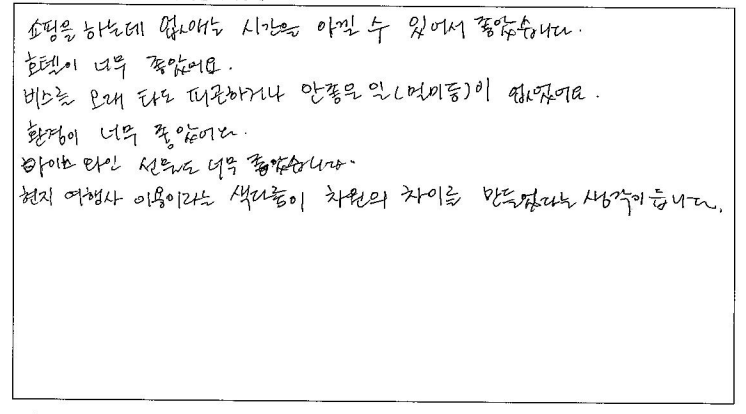 쇼핑을 하는데 없애는 시간을 아낄 수 있어서 좋았습니다.
호텔이 너무 좋았어요.
버스를 오래 타도 피곤하거나 안좋은 일(멀미등)이 없었어요.
환경이 너무 좋았어요.
아이스 와인 선물도 너무 좋았습니다.
현지 여행사 이용이라는 색다름이 차원의 차이를 만들었다는 생각이 듭니다.